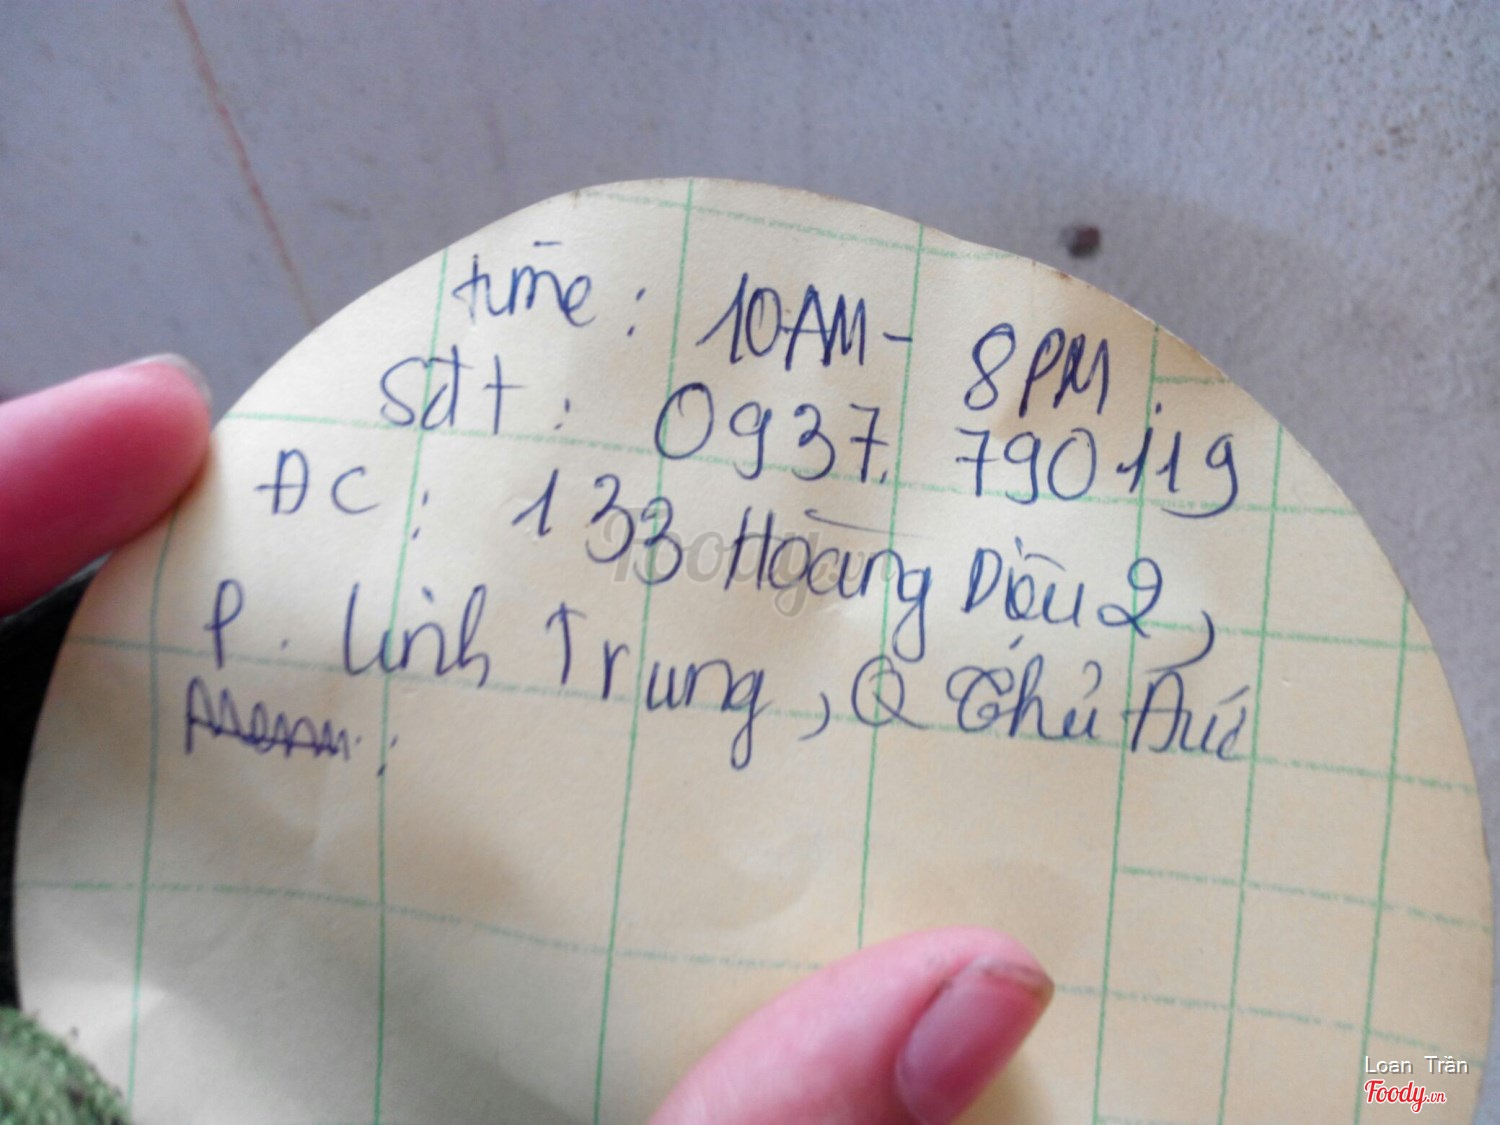 time : 10AM - 8PM.
Sđt : 0937. 790119
ĐC : 133 Hoàng Diệu 2,
P. Linh Trung, Q Thủ Đức
Foody.vn
Loan Trần
Foody.vn